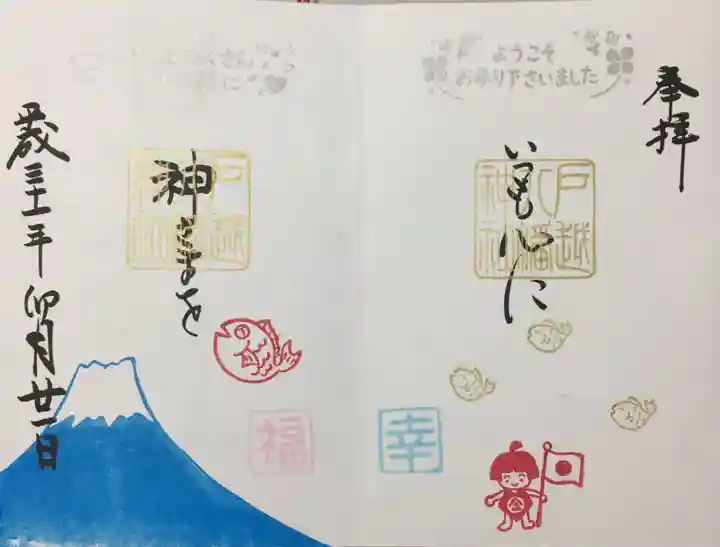 奉拝
ようこそ
お参り下さいました
いつも心に
戸越
八幡
神社
幸
神さまを
戸越
八幡
神社
福
歳三十一年卯月廿一日